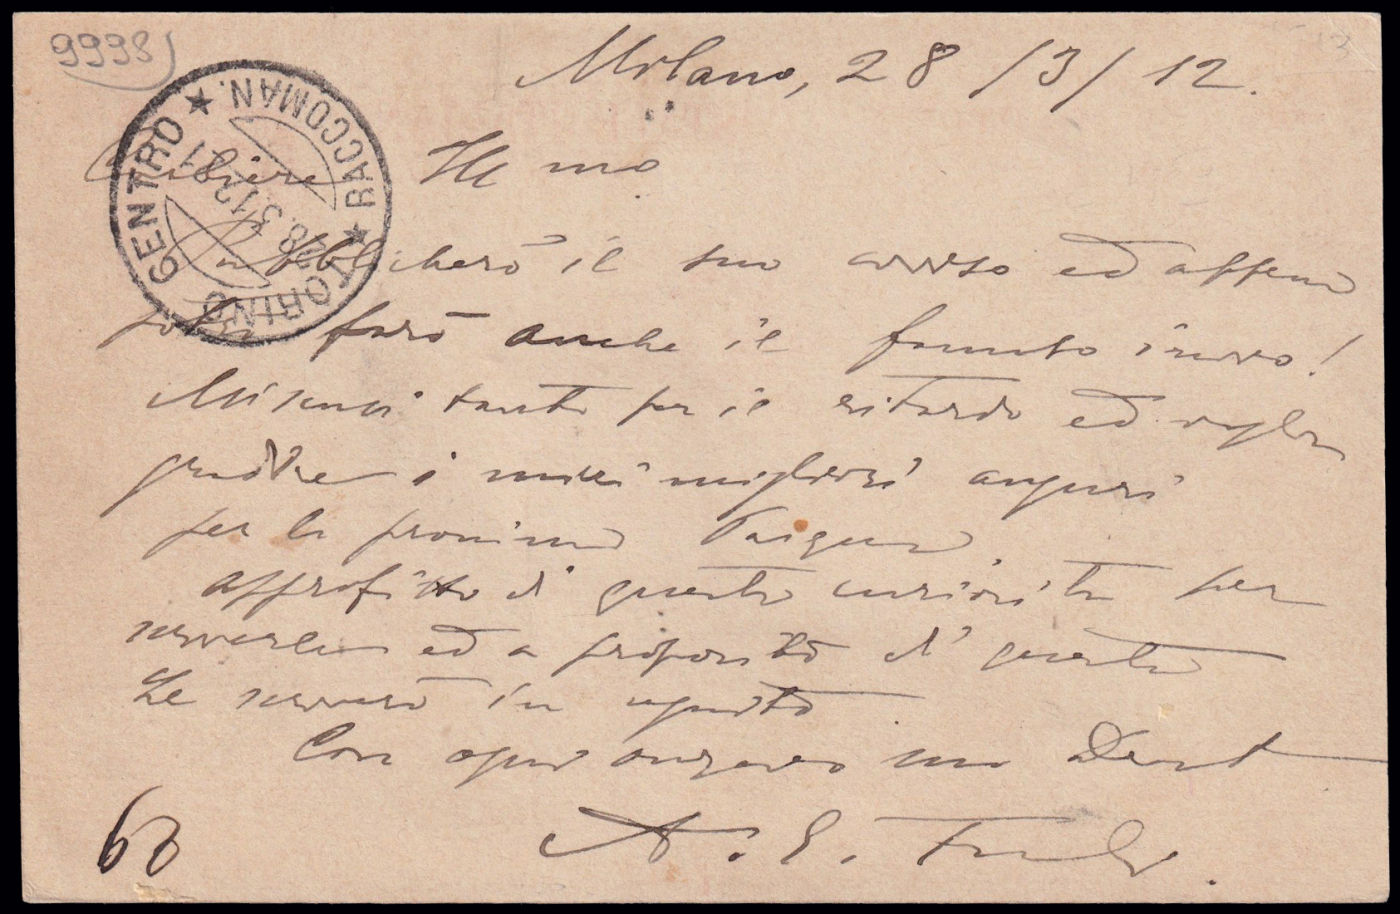 9998
Milano, 28/3/12.
TORINO CENTRO ★ RACCOMAN. ★
28.3.12 8
Ill mo
Pubblicherò il suo avviso ed appena
potrò farò anche il invio!
Mi scusi tanto per il ritardo ed voglia
gradire i miei migliori auguri
per la prossima Pasqua.
approfitto di questa curiosità per
scriverle ed a proposito di questa
Le scriverò in seguito
Con ogni mo Devt
A. E.
60